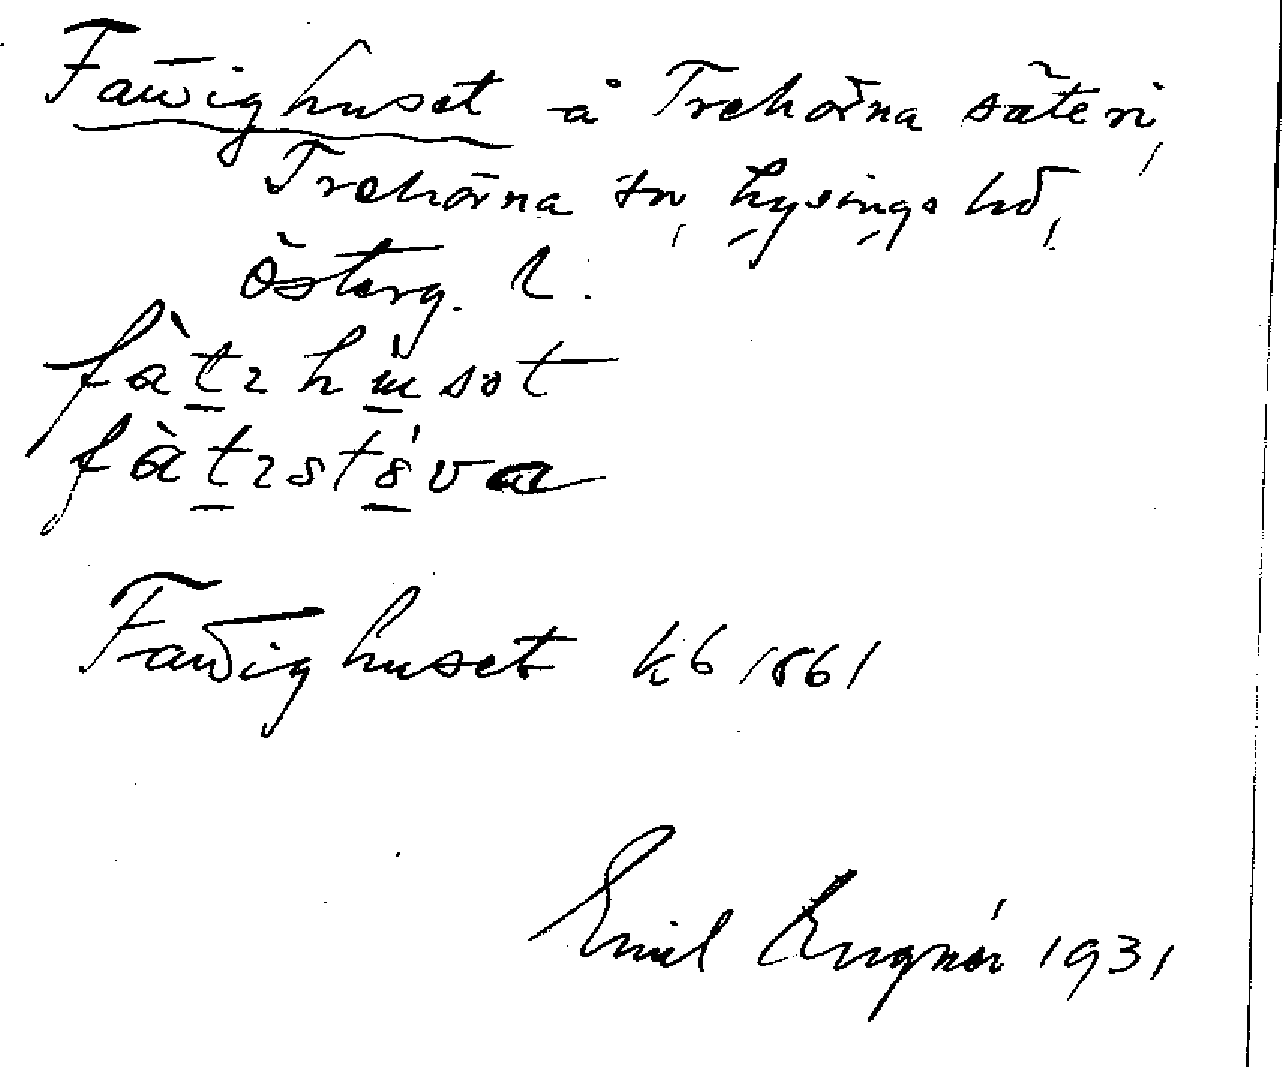 Fattighuset å Trehörna säteri,
Trehörna sn, Lysings hd,
Österg. l.
fàtɪhùsət
fàtɪstéva
Fattighuset kb 1861
Emil Lugnér 1931